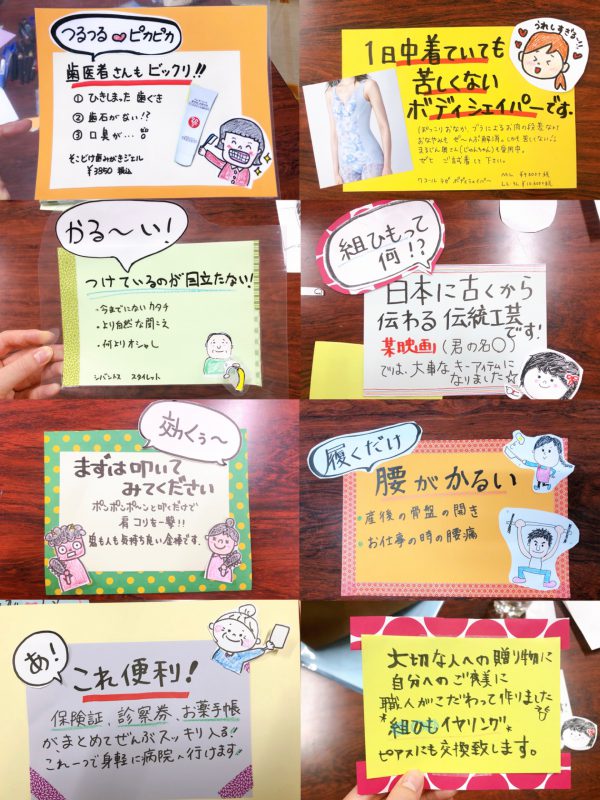 つるつる♥ピカピカ
歯医者さんもビックリ!!
① ひきしまった 歯ぐき
② 歯石がない!?
③ 口臭が…。
そこどけ歯みがきジェル
¥3850 税込
うれしすぎる〜!!
1日中着ていても
苦しくない
ボディシェイパーです。
ぜひ ご試着して下さい。
ワコール ラゼ ボディシェイパー
かる〜い!
つけているのが目立たない!
・今までにないカタチ
・より自然な聞こえ
・何よりオシャレ
シバントス スタイレット
組ひもって
何!?
日本に古くから
伝わる 伝統工芸
です!
某映画(君の名○)
では、大事なキーアイテムに
なりました☆
効くぅ〜
まずは叩いて
みてください
ポンポンポ〜ンと叩くだけで
肩コリを一撃!!
鬼も人も気持ち良い金棒です。
履くだけ
腰がかるい
・産後の骨盤の開き
・お仕事の時の腰痛
あ!
これ便利!
保険証、診察券、お薬手帳
がまとめてぜんぶスッキリ入る!!
これ一つで身軽に病院へ行けます
大切な人への贈り物に
自分へのご褒美に
職人がこだわって作りました
組ひもイヤリング
ピアスにも交換致します。